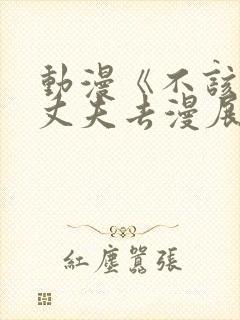 動漫《不該
丈夫去漫展
紅塵囂張